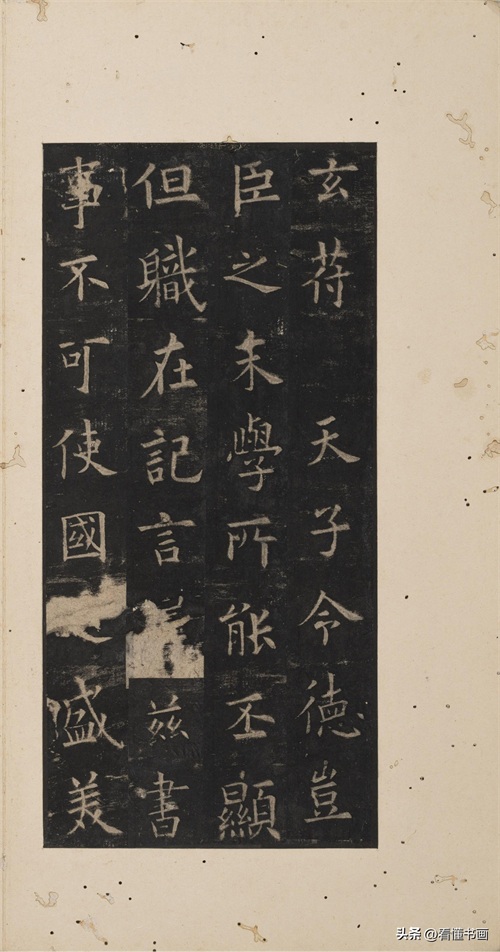 玄苻 天子令徳豈
臣之末學所能丕顯
但職在記言 茲書
事不可使國 盛美
头条 @看懂书画